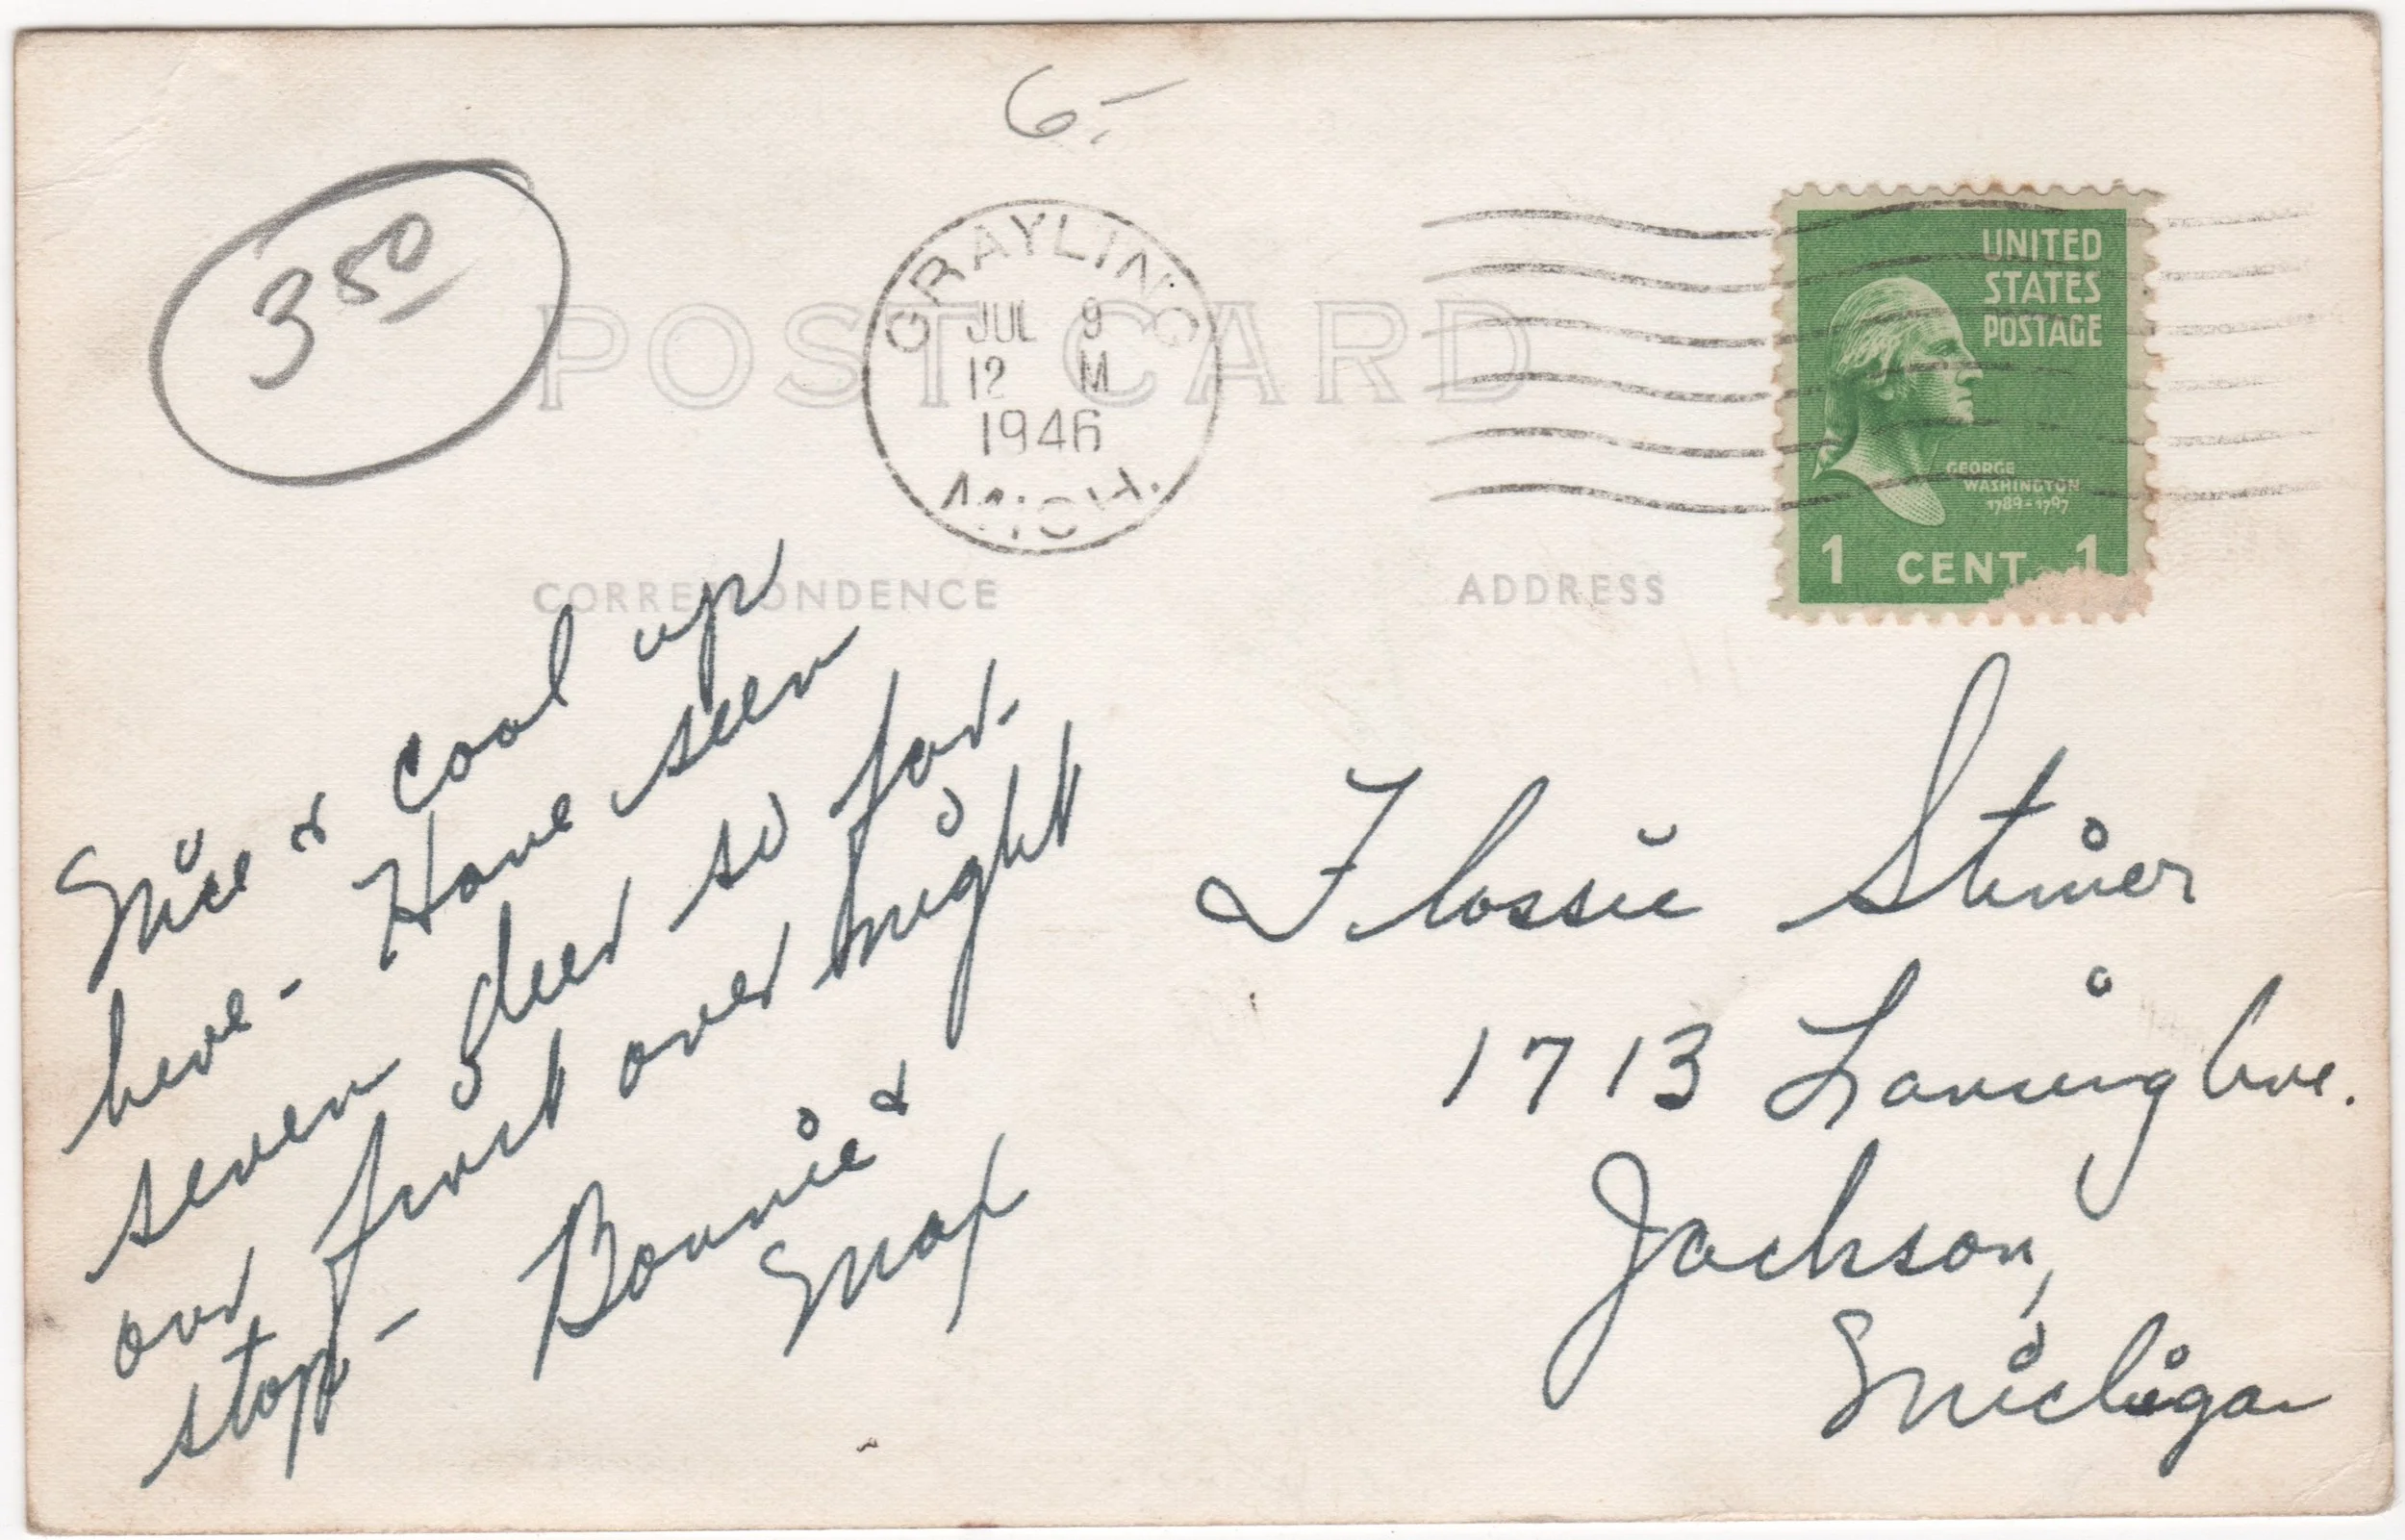 6.-
3 50
GRAYLING
JUL 9
12 M
1946
MICH.
UNITED
STATES
POSTAGE
GEORGE
WASHINGTON
1789-1797
1 CENT 1
POST CARD
CORRESPONDENCE
ADDRESS
Nice & cool up
here - Have seen
seven deer so far.
our first over night
stop - Bonnie &
Max
Flossie Stiner
1713 Lansing Ave.
Jackson,
Michigan